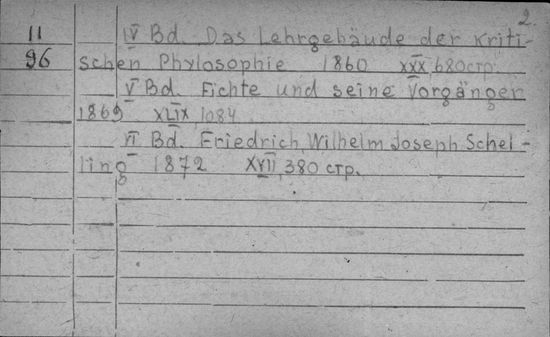 2.
11 IV Bd. Das Lehrgebäude der Kriti-
96 schen Phylosophie 1860 XXX, 680 стр.
V Bd. Fichte und seine Vorgänger
1869 XLIX, 1084
VI Bd. Friedrich Wilhelm Joseph Schel-
ling 1872 XVII, 380 стр.